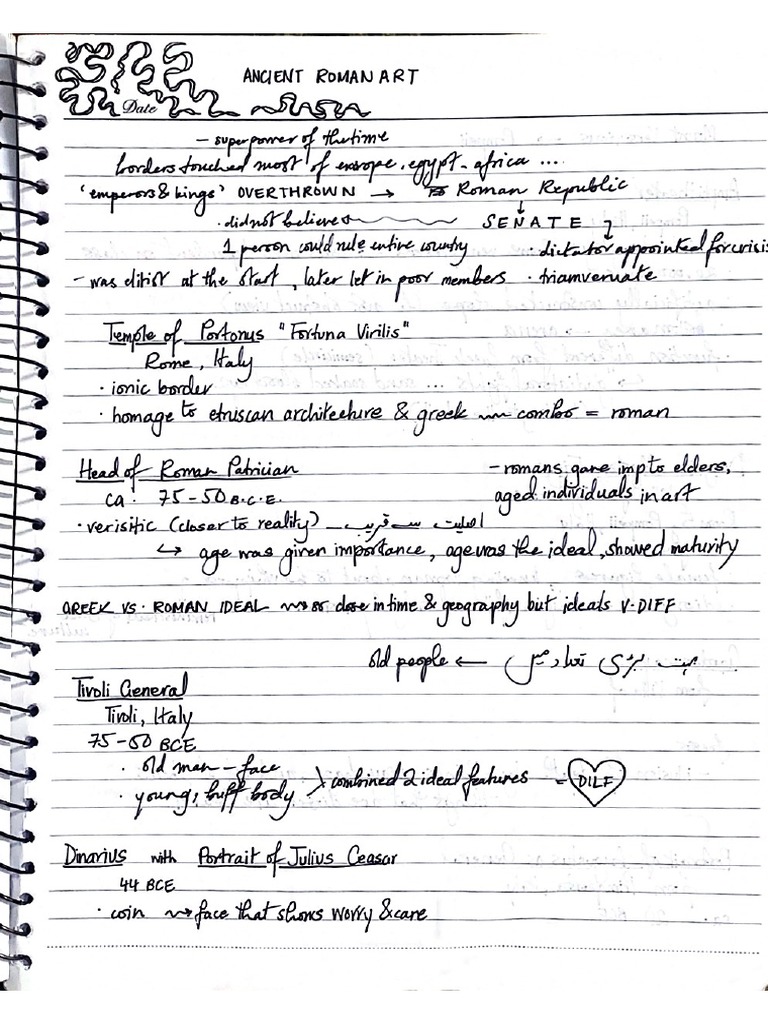 ANCIENT ROMAN ART
Date
- superpower of the time
borders touched most of europe, egypt - africa ....
'emperors & kings' OVERTHROWN → Roman Republic
· did not believe SENATE
1 person could rule entire country · dictator appointed for crisis
- was elitist at the start, later let in poor members · triamveruate
Temple of Portonus "Fortuna Virilis"
Rome, Italy
· ionic border
· homage to etruscan architecture & greek combo = roman
Head of Roman Patrician - romans gave imp to elders,
ca. 75-50 B.C.E. aged individuals in art
· verisitic (closer to reality) - اصلیت سے قریب
↳ age was given importance, age was the ideal, showed maturity
GREEK VS. ROMAN IDEAL so close in time & geography but ideals V. DIFF
old people ← بہت بڑی تعداد میں
Tivoli General
Tivoli, Italy
75-50 BCE
· old man - face
· young, buff body > combined 2 ideal features = DILF
Dinarius with Portrait of Julius Ceasar
44 BCE
· coin → face that shows worry & care